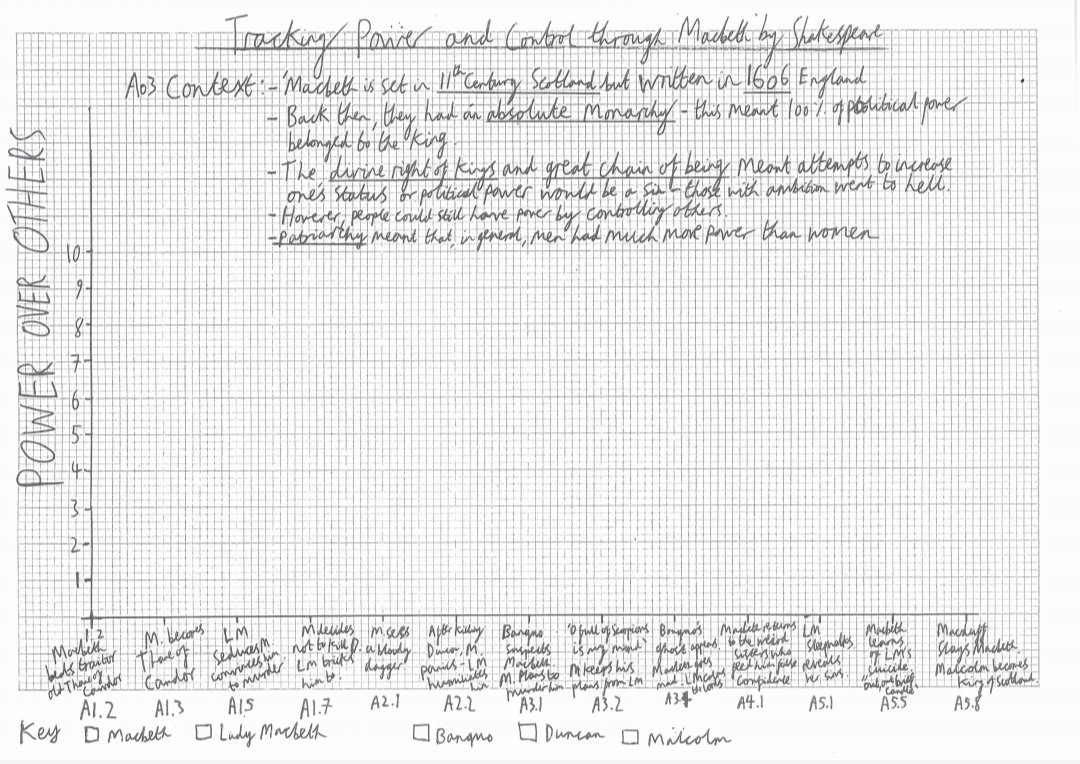 Tracking Power and Control through Macbeth by Shakespeare
Ao3 Context:- 'Macbeth is set in 11th Century Scotland but written in 1606 England
- Back then, they had an absolute Monarchy - this meant 100% of political power
belonged to the King.
- The divine right of Kings and great chain of being meant attempts to increase
one's status or political power would be a sin - those with ambition went to hell.
- However, people could still have power by controlling others.
- Patriarchy meant that, in general, men had much more power than women
POWER OVER OTHERS
10
9
8
7
6
5
4
3
2
1
1.2
Macbeth
beats traitor
old Thane of
Cawdor
A1.2
M. becomes
Thane of
Cawdor
A1.3
LM
seduces M.
convinces him
to murder
A1.5
M decides
not to kill D.
LM tricks
him to.
A1.7
M. sees
a bloody
dagger
A2.1
After killing
Duncan, M.
panics - LM
humiliates
him
A2.2
Banquo
suspects
Macbeth.
M. plans to
murder him
A3.1
'O full of scorpions
is my mind'
M keeps his
plans from LM
A3.2
Banquo's
ghost appears.
Macbeth goes
mad. LM
A3.4
Macbeth returns
to the weird
sisters who
feed him false
confidence
A4.1
LM
sleepwalks
reveals
her sins.
A5.1
Macbeth
learns
of LM's
suicide
"out, out brief
candle"
A5.5
Macduff
slays Macbeth.
Malcolm becomes
King of Scotland.
A5.8
Key
Macbeth
Lady Macbeth
Banquo
Duncan
Malcolm